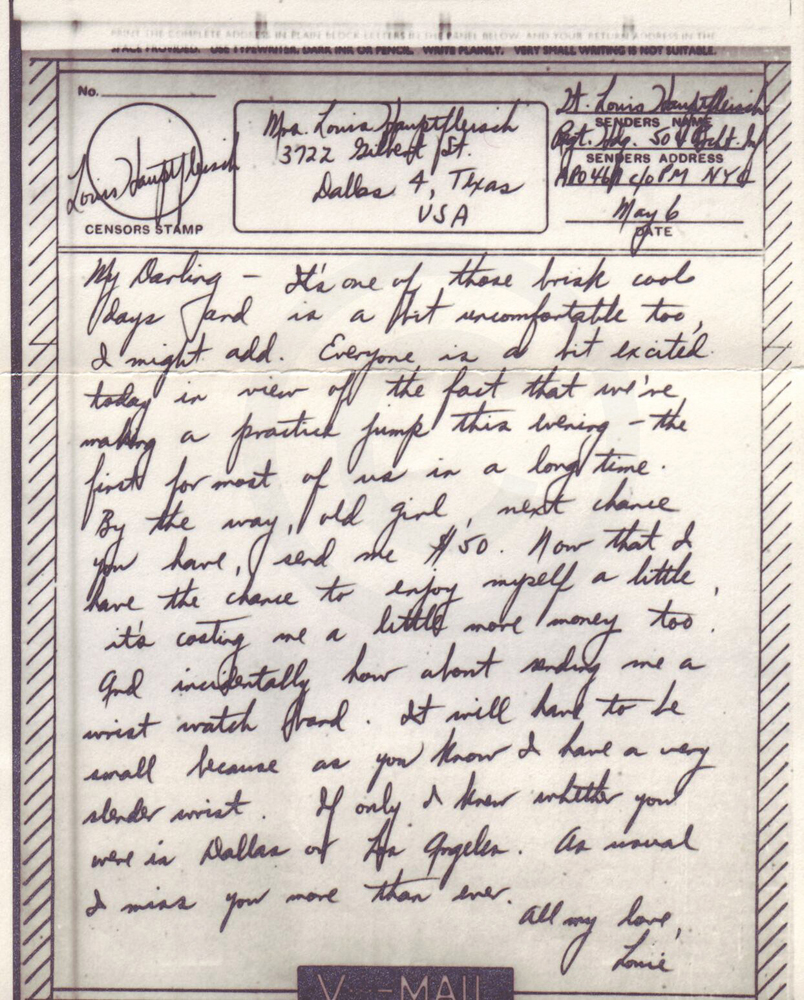 PRINT THE COMPLETE ADDRESS IN PLAIN BLOCK LETTERS IN THE PANEL BELOW, AND YOUR RETURN ADDRESS IN THE
SPACE PROVIDED. USE TYPEWRITER, DARK INK OR PENCIL. WRITE PLAINLY. VERY SMALL WRITING IS NOT SUITABLE.
No.
Louis Hauptfleisch
CENSORS STAMP
Mrs. Louis Hauptfleisch
3722 Gilbert St.
Dallas 4, Texas
USA
Lt. Louis Hauptfleisch
SENDERS NAME
Regt. Hdq. 504 Pcht. Inf
SENDERS ADDRESS
APO 469 c/o PM NYC
May 6
DATE
My Darling – It's one of those brisk cool
days and is a bit uncomfortable too,
I might add. Everyone is a bit excited
today in view of the fact that we're
making a practice jump this evening – the
first for most of us in a long time.
By the way, old girl, next chance
you have, send me $50. Now that I
have the chance to enjoy myself a little,
it's costing me a little more money too.
And incidentally how about sending me a
wrist watch band. It will have to be
small because as you know I have a very
slender wrist. If only I knew whether you
were in Dallas or Los Angeles. As usual
I miss you more than ever.
All my love,
Louie
V···–MAIL